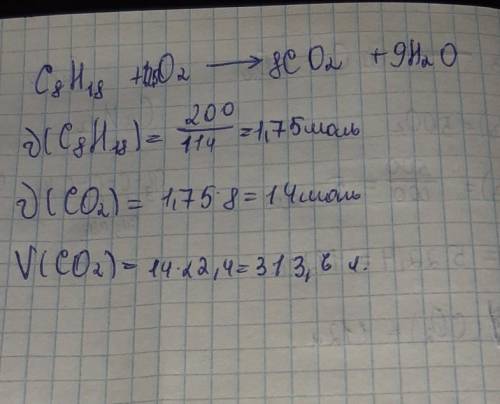 C₈H₁₈ + O₂ → 8CO₂ + 9H₂O
ν(C₈H₁₈) = 200/114 = 1,75 моль
ν(CO₂) = 1,75·8 = 14 моль
V(CO₂) = 14·22,4 = 313,6 л.